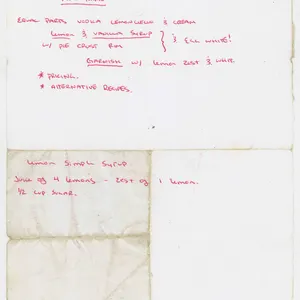 EQUAL PARTS VODKA LEMONCELLO & CREAM
LEMON & VANILLA SYRUP
W/ PIE CRUST RIM
& EGG WHITE!
GARNISH W/ LEMON ZEST & WHIT.
* PRICING.
* ALTERNATIVE RECIPES.
LEMON SIMPLE SYRUP
JUICE OF 4 LEMONS - ZEST OF 1 LEMON.
1/2 CUP SUGAR.